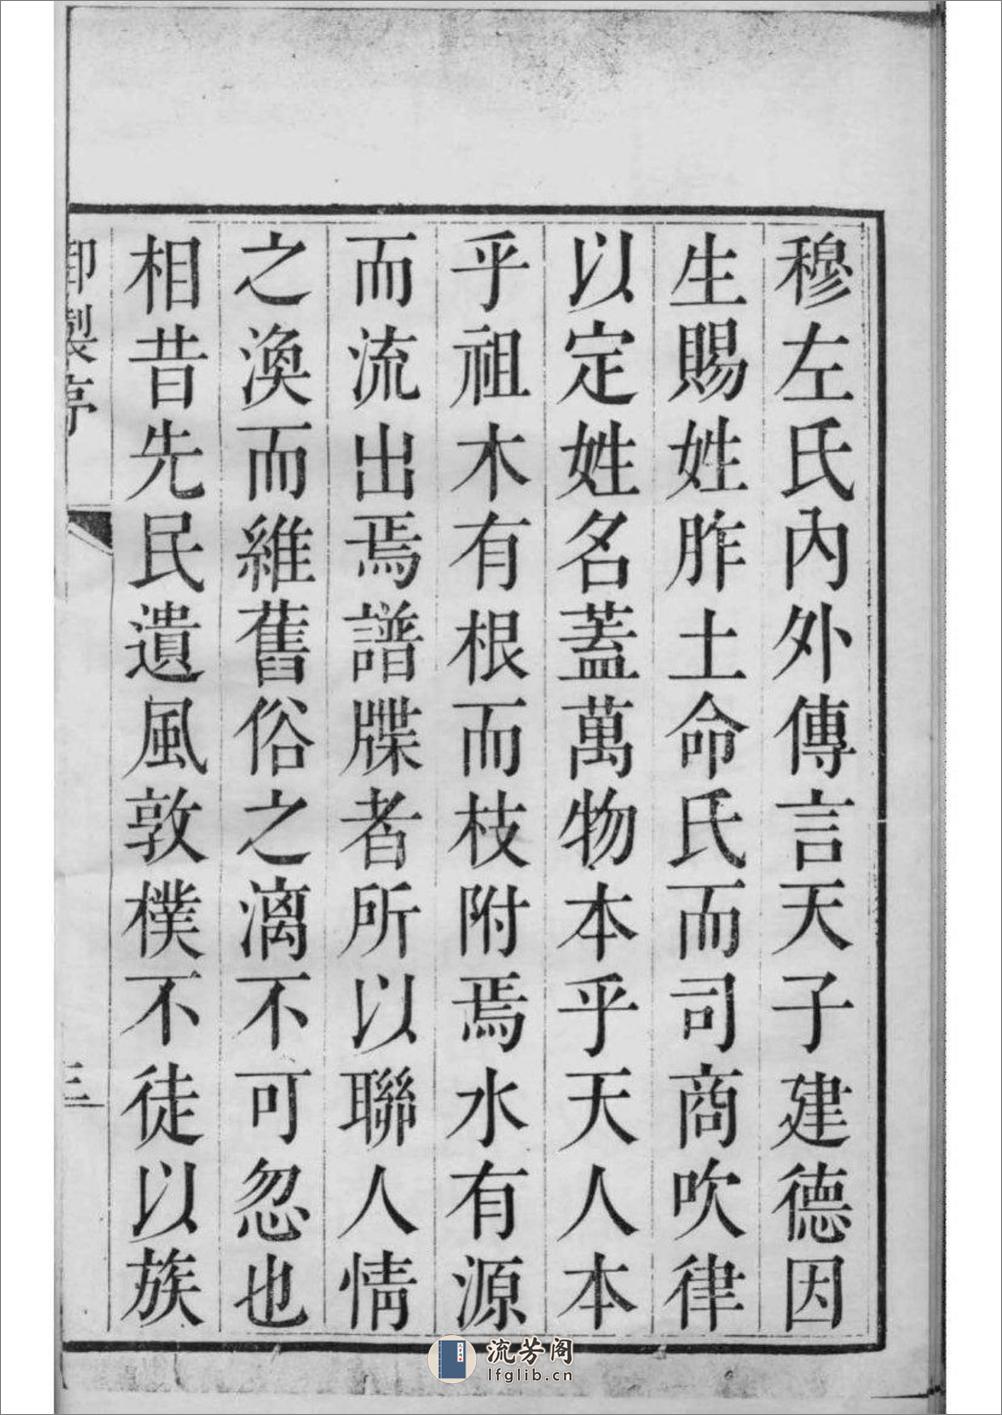 穆左氏內外傳言天子建德因
生賜姓胙土命氏而司商吹律
以定姓名蓋萬物本乎天人本
乎祖木有根而枝附焉水有源
而流出焉譜牒者所以聯人情
之渙而維舊俗之漓不可忽也
相昔先民遺風敦樸不徒以族
御製序
三
流芳阁
lfglib.cn